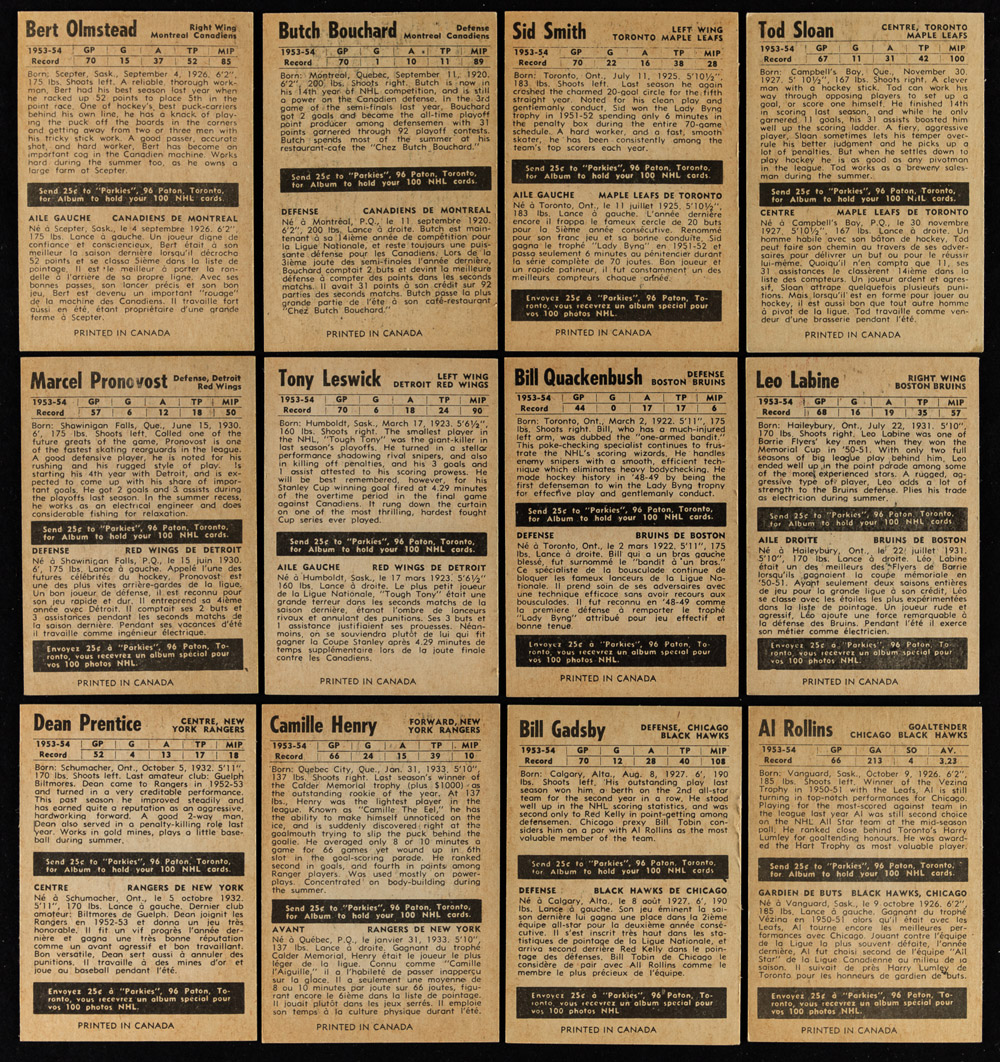 Bert Olmstead
Right Wing
Montreal Canadiens
1953-54 GP G A TP MIP
Record 70 15 37 52 85
Born: Scepter, Sask., September 4, 1926. 6'2",
175 lbs. Shoots left. A reliable thorough work-
man, Bert had his best season last year when
he racked up 52 points to place 5th in the
point race. One of hockey's best puck-carriers
behind his own line, he has a knack of play-
ing the puck off the boards in the corners
and getting away from two or three men with
his tricky stick work. A good passer, accurate
shot, and hard worker, Bert has become an
important cog in the Canadien machine. Works
hard during the summer too, as he owns a
large farm at Scepter.
Send 25c to "Parkies", 96 Paton, Toronto,
for Album to hold your 100 NHL cards.
AILE GAUCHE CANADIENS DE MONTREAL
Né à Scepter, Sask., le 4 septembre 1926. 6'2",
175 lbs. Lance à gauche. Un joueur digne de
confiance et consciencieux, Bert était à son
meilleur la saison dernière lorsqu'il décrocha
52 points et se classa 5ième dans la liste de
pointage. Il est le meilleur à porter la ron-
delle à l'arrière de sa propre ligne. Avec ses
bonnes passes, son lancer précis et son bon
jeu, Bert est devenu un important "rouage"
de la machine des Canadiens. Il travaille fort
aussi en été, étant propriétaire d'une grande
ferme à Scepter.
PRINTED IN CANADA
Butch Bouchard
Defense
Montreal Canadiens
1953-54 GP G A TP MIP
Record 70 1 10 11 89
Born: Montreal, Quebec, September 11, 1920.
6'2", 200 lbs. Shoots right. Butch is now in
his 14th year of NHL competition, and is still
a power on the Canadien defense. In the 3rd
game of the semi-finals last year, Bouchard
got 2 goals and became the all-time playoff
point producer among defensemen with 31
points garnered through 92 playoff contests.
Butch spends most of the summer at his
restaurant-cafe the "Chez Butch Bouchard."
Send 25c to "Parkies", 96 Paton, Toronto,
for Album to hold your 100 NHL cards.
DEFENSE CANADIENS DE MONTREAL
Né à Montréal, P.Q., le 11 septembre 1920.
6'2", 200 lbs. Lance à droite. Butch est main-
tenant à sa 14ième année de compétition pour
la Ligue Nationale, et reste toujours une puis-
sante défense pour les Canadiens. Lors de la
3ième joute des semi-finales l'année dernière,
Bouchard comptait 2 buts et devint la meilleure
défense à compter des points dans les seconds
matchs. Il avait 31 points à son crédit sur 92
parties des seconds matchs. Butch passe la plus
grande partie de l'été à son café-restaurant
"Chez Butch Bouchard."
PRINTED IN CANADA
Sid Smith
LEFT WING
TORONTO MAPLE LEAFS
1953-54 GP G A TP MIP
Record 70 22 16 38 28
Born: Toronto, Ont., July 11, 1925. 5'10½",
183 lbs. Shoots left. Last season he again
crashed the charmed 20-goal circle for the fifth
straight year. Noted for his clean play and
gentlemanly conduct, Sid won the Lady Byng
trophy in 1951-52 spending only 6 minutes in
the penalty box during the entire 70-game
schedule. A hard worker, and a fast, smooth
skater, he has been consistently among the
team's top scorers each year.
Send 25c to "Parkies", 96 Paton, Toronto,
for Album to hold your 100 NHL cards.
AILE GAUCHE MAPLE LEAFS DE TORONTO
Né à Toronto, Ont., le 11 juillet 1925. 5'10½",
183 lbs. Lance à gauche. L'année dernière
encore il frappa le fameux cercle de 20 buts
pour la 5ième année consécutive. Renommé
pour son franc jeu et sa bonne conduite, Sid
gagna le trophé "Lady Byng" en 1951-52 et
passa seulement 6 minutes au pénitencier durant
la série complète de 70 joutes. Bon joueur et
un rapide patineur, il fut constamment un des
meilleurs compteurs chaque année.
Envoyez 25c à "Parkies", 96 Paton, To-
ronto, vous recevrez un album special pour
vos 100 photos NHL.
PRINTED IN CANADA
Tod Sloan
CENTRE, TORONTO
MAPLE LEAFS
1953-54 GP G A TP MIP
Record 67 11 31 42 100
Born: Campbell's Bay, Que., November 30,
1927. 5' 10½", 167 lbs. Shoots right. A clever
man with a hockey stick. Tod can work his
way through opposing players to set up a
goal, or score one himself. He finished 14th
in scoring last season, and while he only
garnered 11 goals, his 31 assists boosted him
well up the scoring ladder. A fiery, aggressive
player, Sloan sometimes lets his temper over-
rule his better judgment and he picks up a
lot of penalties. But when he settles down to
play hockey he is as good as any pivotman
in the league. Tod works as a brewery sales-
man during the summer.
Send 25c to "Parkies", 96 Paton, Toronto,
for Album to hold your 100 NHL cards.
CENTRE MAPLE LEAFS DE TORONTO
Né à Campbell's Bay, P.Q., le 30 novembre
1927. 5'10½", 167 lbs. Lance à droite. Un
homme habile avec son bâton de hockey, Tod
peut faire son chemin au travers de ses adver-
saires pour délivrer un but ou pour le réussir
lui-même. Quoiqu'il n'en compta que 11, ses
31 assistances le classèrent 14ième dans la
liste des compteurs. Un joueur ardent et agres-
sif, Sloan attrape quelquefois plusieurs puni-
tions. Mais lorsqu'il est en forme pour jouer au
hockey, il est aussi bon que tout autre homme
à pivot de la ligue. Tod travaille comme ven-
deur d'une brasserie pendant l'été.
PRINTED IN CANADA
Marcel Pronovost
Defense, Detroit
Red Wings
1953-54 GP G A TP MIP
Record 57 6 12 18 50
Born: Shawinigan Falls, Que., June 15, 1930.
6', 175 lbs. Shoots left. Called one of the
future greats of the game, Pronovost is one
of the fastest skating rearguards in the league.
A good defensive player, he is noted for his
rushing and his rugged style of play. Is
starting his 4th year with Detroit, and is ex-
pected to come up with his share of impor-
tant goals. He got 2 goals and 3 assists during
the playoffs last season. In the summer recess,
he works as an electrical engineer and does
considerable fishing for relaxation.
Send 25c to "Parkies", 96 Paton, Toronto,
for Album to hold your 100 NHL cards.
DEFENSE RED WINGS DE DETROIT
Né à Shawinigan Falls, P.Q., le 15 juin 1930.
6', 175 lbs. Lance à gauche. Appelé l'une des
futures célébrités du hockey, Pronovost est
une des plus vites arrière-gardes de la ligue.
Un bon joueur de défense, il est reconnu pour
son jeu rapide et dur. Il entreprend sa 4ième
année avec Détroit. Il comptait ses 2 buts et
3 assistances pendant les seconds matchs de
la saison dernière. Pendant ses vacances d'été
il travaille comme ingénieur électrique.
Envoyez 25c à "Parkies", 96 Paton, To-
ronto, vous recevrez un album special pour
vos 100 photos NHL.
PRINTED IN CANADA
Tony Leswick
LEFT WING
DETROIT RED WINGS
1953-54 GP G A TP MIP
Record 70 6 18 24 90
Born: Humboldt, Sask., March 17, 1923. 5'6½",
160 lbs. Shoots right. The smallest player in
the NHL, "Tough Tony" was the giant-killer in
last season's playoffs. He turned in a stellar
performance shadowing rival snipers, and also
in killing off penalties, and his 3 goals and
1 assist attested to his scoring prowess. He
will be best remembered, however, for his
Stanley Cup winning goal fired at 4.29 minutes
of the overtime period in the final game
against Canadiens. It rung down the curtain
on one of the most thrilling, hardest fought
Cup series ever played.
Send 25c to "Parkies", 96 Paton, Toronto,
for Album to hold your 100 NHL cards.
AILE GAUCHE RED WINGS DE DETROIT
Né à Humboldt, Sask., le 17 mars 1923. 5'6½",
160 lbs. Lance à droite. Le plus petit joueur
de la Ligue Nationale, "Tough Tony" était une
grande terreur dans les seconds matchs de la
saison dernière, étanot l'ombre de lanceurs
rivaux et annulant des punitions. Ses 3 buts et
1 assistance justifiaient ses prouesses. Néan-
moins, on se souviendra plutôt de lui qui fit
gagner la Coupe Stanley après 4.29 minutes de
temps supplémentaire lors de la joute finale
contre les Canadiens.
PRINTED IN CANADA
Bill Quackenbush
DEFENSE
BOSTON BRUINS
1953-54 GP G A TP MIP
Record 44 0 17 17 6
Born: Toronto, Ont., March 2, 1922. 5'11", 175
lbs. Shoots right. Bill, who has a much-injured
left arm, was dubbed the "one-armed bandit."
This poke-checking specialist continues to frus-
trate the NHL's scoring wizards. He handles
enemy snipers with a smooth, efficient tech-
nique which eliminates heavy bodychecking. He
made hockey history in '48-49 by being the
first defenseman to win the Lady Byng trophy
for effective play and gentlemanly conduct.
Send 25c to "Parkies", 96 Paton, Toronto,
for Album to hold your 100 NHL cards.
DEFENSE BRUINS DE BOSTON
Né à Toronto, Ont., le 2 mars 1922. 5'11", 175
lbs. Lance à droite. Bill qui a un bras gauche
blessé, fut surnommé le "bandit à un bras."
Ce spécialiste de la bousculade continue de
bloquer les fameux lanceurs de la Ligue Na-
tionale. Il prend soin de ses adversaires avec
une technique efficace sans avoir recours aux
bousculades. Il fut reconnu en '48-49 comme
la première défense à remporter le trophé
"Lady Byng" attribué pour jeu effectif et
bonne tenue.
Envoyez 25c à "Parkies", 96 Paton, To-
ronto, vous recevrez un album special pour
vos 100 photos NHL.
PRINTED IN CANADA
Leo Labine
RIGHT WING
BOSTON BRUINS
1953-54 GP G A TP MIP
Record 68 16 19 35 57
Born: Haileybury, Ont., July 22, 1931. 5'10",
170 lbs. Shoots right. Leo Labine was one of
Barrie Flyers' key men when they won the
Memorial Cup in '50-51. With only two full
seasons of big league play behind him, Leo
ended well up in the point parade among some
of the more experienced stars. A rugged, ag-
gressive type of player, Leo adds a lot of
strength to the Bruins defense. Plies his trade
as electrician during summer.
Send 25c to "Parkies", 96 Paton, Toronto,
for Album to hold your 100 NHL cards
AILE DROITE BRUINS DE BOSTON
Né à Haileybury, Ont., le 22 juillet 1931.
5'10", 170 lbs. Lance à droite. Léo Labine
était un des meilleurs des Flyers de Barrie
lorsqu'ils gagnaient la coupe mémorial en
'50-51. Ayant seulement deux saisons entières
de jeu pour la grande ligue à son crédit, Léo
se classe avec les étoiles les plus expérimentées
dans la liste de pointage. Un joueur rude et
agressif, Léo ajoute une force remarquable à
la défense des Bruins. Pendant l'été il exerce
son métier comme électricien.
Envoyez 25c à "Parkies", 96 Paton, To-
ronto, vous recevrez un album special pour
vos 100 photos NHL.
PRINTED IN CANADA
Dean Prentice
CENTRE, NEW
YORK RANGERS
1953-54 GP G A TP MIP
Record 52 4 13 17 18
Born: Schumacher, Ont., October 5, 1932. 5'11",
170 lbs. Shoots left. Last amateur club: Guelph
Biltmores. Dean came to Rangers in 1952-53
and turned in a very creditable performance.
This past season he improved steadily and
has earned quite a reputation as an aggressive,
hardworking forward. A good 2-way man,
Dean also served in a penalty-killing role last
year. Works in gold mines, plays a little base-
ball during summer.
Send 25c to "Parkies", 96 Paton, Toronto,
for Album to hold your 100 NHL cards
CENTRE RANGERS DE NEW YORK
Né à Schumacher, Ont., le 5 octobre 1932.
5'11", 170 lbs. Lance à gauche. Dernier club
amateur: Biltmores de Guelph. Dean joignit les
Rangers en 1952-53 et donna un jeu très
honorable. Il fit un vif progrès l'année der-
nière et gagna une très bonne réputation
comme un avant agressif et bon travaillant.
Bon versatile, Dean sert aussi à annuler des
punitions. Il travaille à des mines d'or et
joue au baseball pendant l'été.
Envoyez 25c à "Parkies", 96 Paton, To-
ronto, vous recevrez un album special pour
vos 100 photos NHL.
PRINTED IN CANADA
Camille Henry
FORWARD, NEW
YORK RANGERS
1953-54 GP G A TP MIP
Record 66 24 15 39 10
Born: Quebec City, Que., Jan. 31, 1933. 5'10",
137 lbs. Shoots right. Last season's winner of
the Calder Memorial trophy (plus $1000) as
the outstanding rookie of the year. At 137
lbs., Henry was the lightest player in the
league. Known as "Camille The Eel," he has
the ability to make himself unnoticed on the
ice, and is suddenly discovered right at the
goalmouth trying to slip the puck behind the
goalie. He averaged only 8 or 10 minutes a
game for 66 games yet wound up in 6th
slot in the goal-scoring parade. He ranked
second in goals, and fourth in points among
Ranger players. Was used mostly on power-
plays. Concentrated on body-building during
the summer.
Send 25c to "Parkies", 96 Paton, Toronto,
for Album to hold your 100 NHL cards.
AVANT RANGERS DE NEW YORK
Né à Québec, P.Q., le janvier 31, 1933. 5'10",
137 lbs. Lance à droite. Gagnant du trophé
Calder Memorial, Henry était le joueur le plus
léger de la ligue. Connu comme "Camille
l'Aiguille," il a l'habileté de passer inaperçu
sur la glace. Il a seulement une moyenne de
8 ou 10 minutes par joute sur 66 joutes, figu-
rant encore le 6ième dans la liste de pointage.
Il jouait plutôt dans les jeux serrés. Il emploie
son temps à la culture physique durant l'été.
PRINTED IN CANADA
Bill Gadsby
DEFENSE, CHICAGO
BLACK HAWKS
1953-54 GP G A TP MIP
Record 70 12 28 40 108
Born: Calgary, Alta., Aug. 8, 1927. 6', 190
lbs. Shoots left. His outstanding play last
season won him a berth on the 2nd all-star
team for the second year in a row. He stood
well up in the NHL scoring statistics, and was
second only to Red Kelly in point-getting among
defensemen. Chicago prexy Bill Tobin con-
siders him on a par with Al Rollins as the most
valuable member of the team.
Send 25c to "Parkies", 96 Paton, Toronto,
for Album to hold your 100 NHL cards
DEFENSE BLACK HAWKS DE CHICAGO
Né à Calgary, Alta., le 8 août 1927. 6', 190
lbs. Lance à gauche. Son jeu éminent la sai-
son dernière lui gagna une place dans la 2ième
équipe all-star pour la deuxième année consé-
cutive. Il s'est inscrit très haut dans les sta-
tistiques de pointage de la Ligue Nationale, et
arriva second derrière Red Kelly dans le poin-
tage des défenses. Bill Tobin de Chicago le
considère de pair avec Al Rollins comme le
membre le plus précieux de l'équipe.
Envoyez 25c à "Parkies", 96 Paton, To-
ronto, vous recevrez un album special pour
vos 100 photos NHL
PRINTED IN CANADA
Al Rollins
GOALTENDER
CHICAGO BLACK HAWKS
1953-54 GP GA SO AV.
Record 66 213 4 3.23
Born: Vanguard, Sask., October 9, 1926. 6'2",
185 lbs. Shoots left. Winner of the Vezina
Trophy in 1950-51 with the Leafs, Al is still
turning in top-notch performances for Chicago.
Playing for the most-scored against team in
the league last year Al was still second choice
on the NHL All Star team at the mid-season
poll. He ranked close behind Toronto's Harry
Lumley for goaltending honours. He was award-
ed the Hart Trophy as most valuable player.
Send 25c to "Parkies", 96 Paton, Toronto,
for Album to hold your 100 NHL cards.
GARDIEN DE BUTS BLACK HAWKS, CHICAGO
Né à Vanguard, Sask., le 9 octobre 1926. 6'2",
185 lbs. Lance à gauche. Gagnant du trophé
Vézina en 1950-51 alors qu'il était avec les
Leafs, Al tourne encore les meilleures per-
formances avec Chicago. Jouant contre l'équipe
de la Ligue la plus souvent défaite, l'année
dernière, Al fut choisi second de l'équipe "All
Star" de la Ligue Canadienne au milieu de la
saison. Il suivait de près Harry Lumley de
Toronto pour les honneurs de gardien de buts.
Envoyez 25c à "Parkies", 96 Paton, To-
ronto, vous recevrez un album special pour
vos 100 photos NHL.
PRINTED IN CANADA